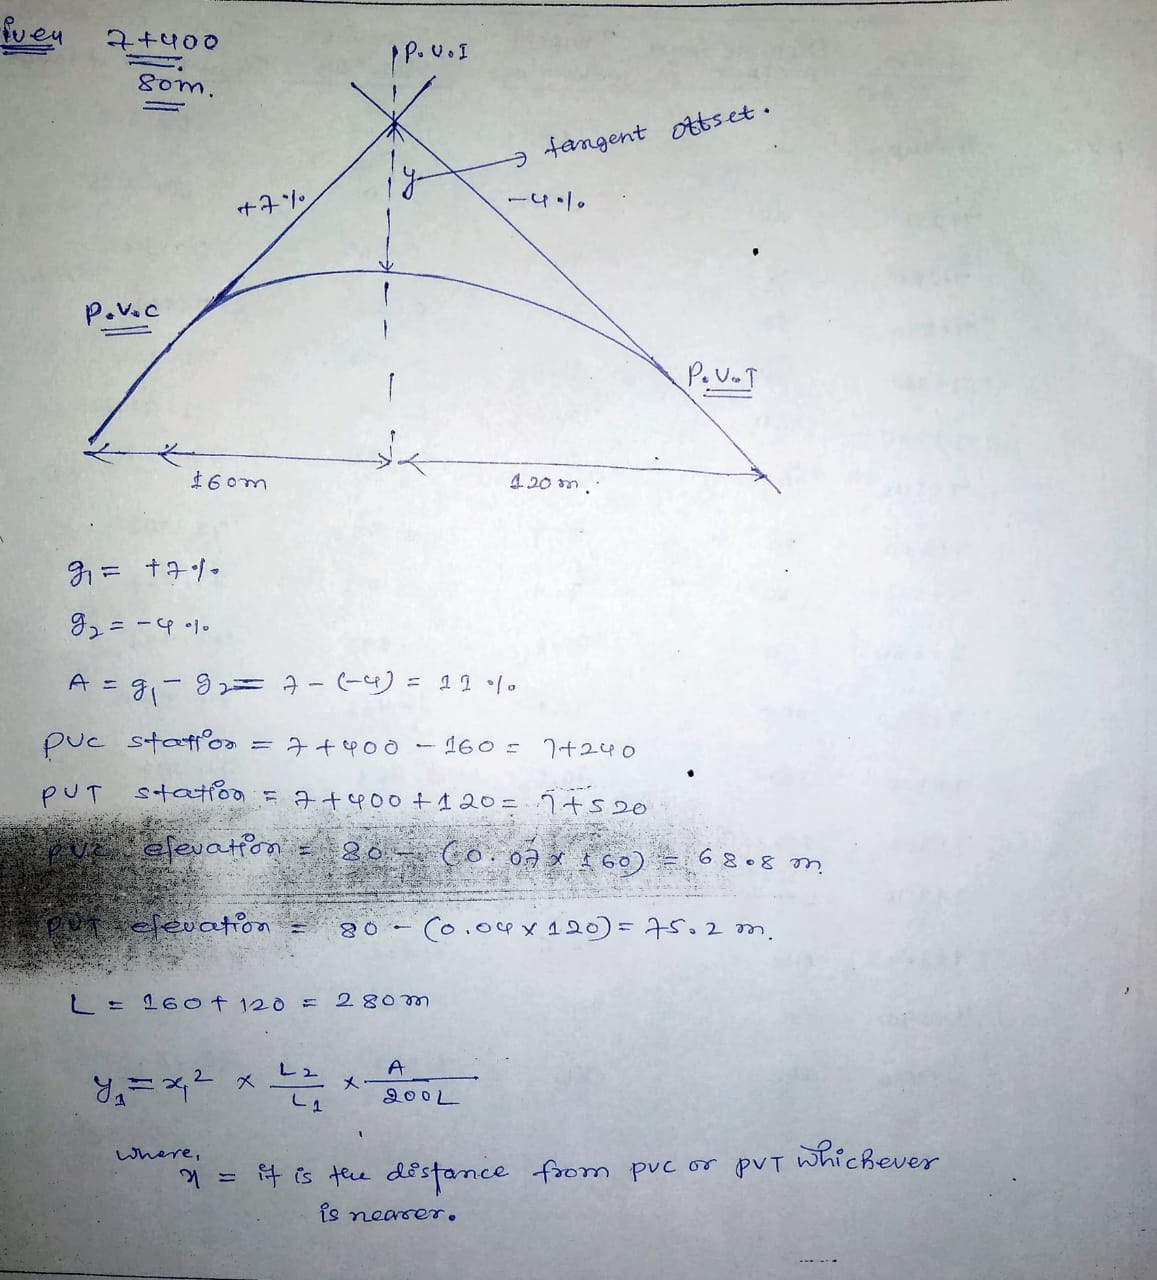 Given 7+400
80m.
P.V.I
tangent offset.
y
+7%
-4%
P.V.C
P.V.T
160m
120m.
g1 = +7%
g2 = -4%
A = g1 - g2 = 7 - (-4) = 11%
PVC station = 7+400 - 160 = 7+240
PVT station = 7+400 + 120 = 7+520
PVC elevation = 80 - (0.07 x 160) = 68.8 m
PVT elevation = 80 - (0.04 x 120) = 75.2 m.
L = 160 + 120 = 280m
y1 = x1² x L2/L1 x A/200L
where,
x = it is the distance from PVC or PVT whichever
is nearer.